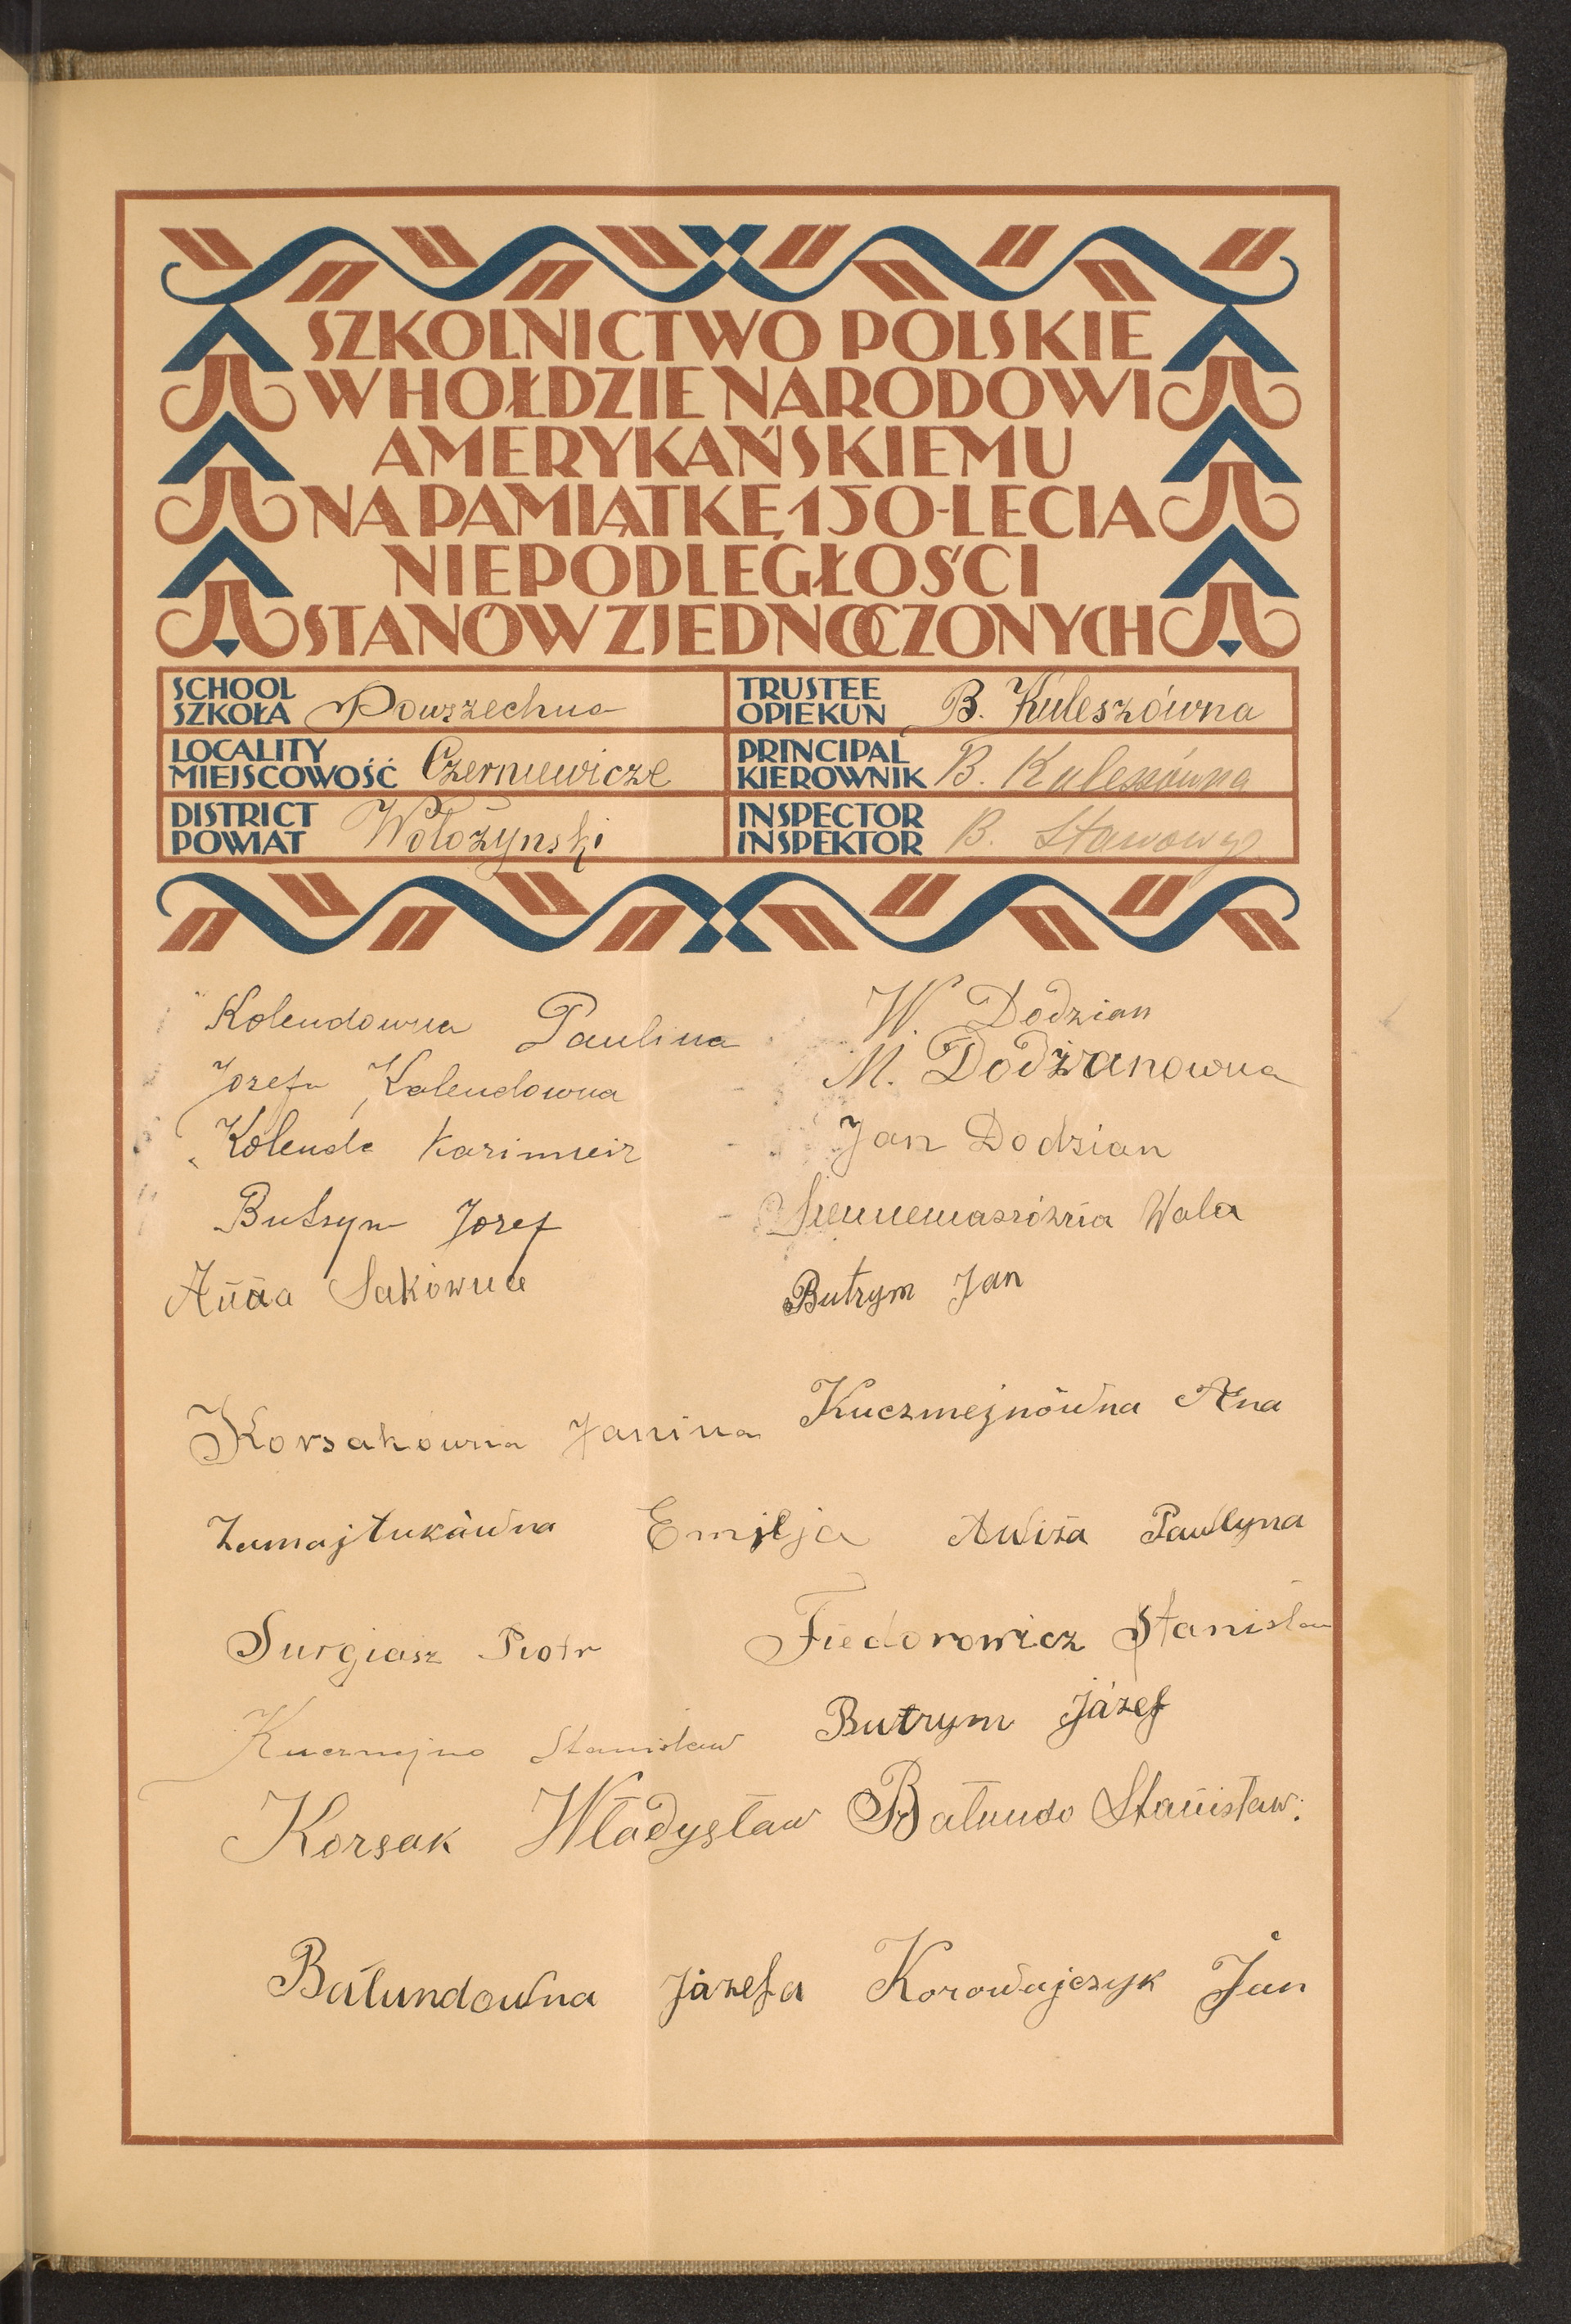 SZKOLNICTWO POLSKIE
W HOŁDZIE NARODOWI
AMERYKAŃSKIEMU
NA PAMIĄTKĘ 150-LECIA
NIEPODLEGŁOŚCI
STANÓW ZJEDNOCZONYCH
SCHOOL
SZKOŁA Powszechna
TRUSTEE
OPIEKUN B. Kuleszówna
LOCALITY
MIEJSCOWOŚĆ Czerniewicze
PRINCIPAL
KIEROWNIK B. Kuleszówna
DISTRICT
POWIAT Wołożynski
INSPECTOR
INSPEKTOR B. Stawowy
Kolendowna Paulina
W. Dodzian
Jozefa Kolendowna
M. Dodzianowna
Kolenda Kazimierz
Jan Dodzian
Butrym Jozef
Wala
Anna Sakówna
Butrym Jan
Korsakówna Janina
Kuczmejnówna Ana
Emilja
Paullyna
Surgiasz Piotr
Fiedorowicz Stanisław
Kuczmejno Stanisław
Butrym Józef
Korsak Władysław
Bałundo Stanisław.
Bałundowna Józefa
Korowajczyk Jan